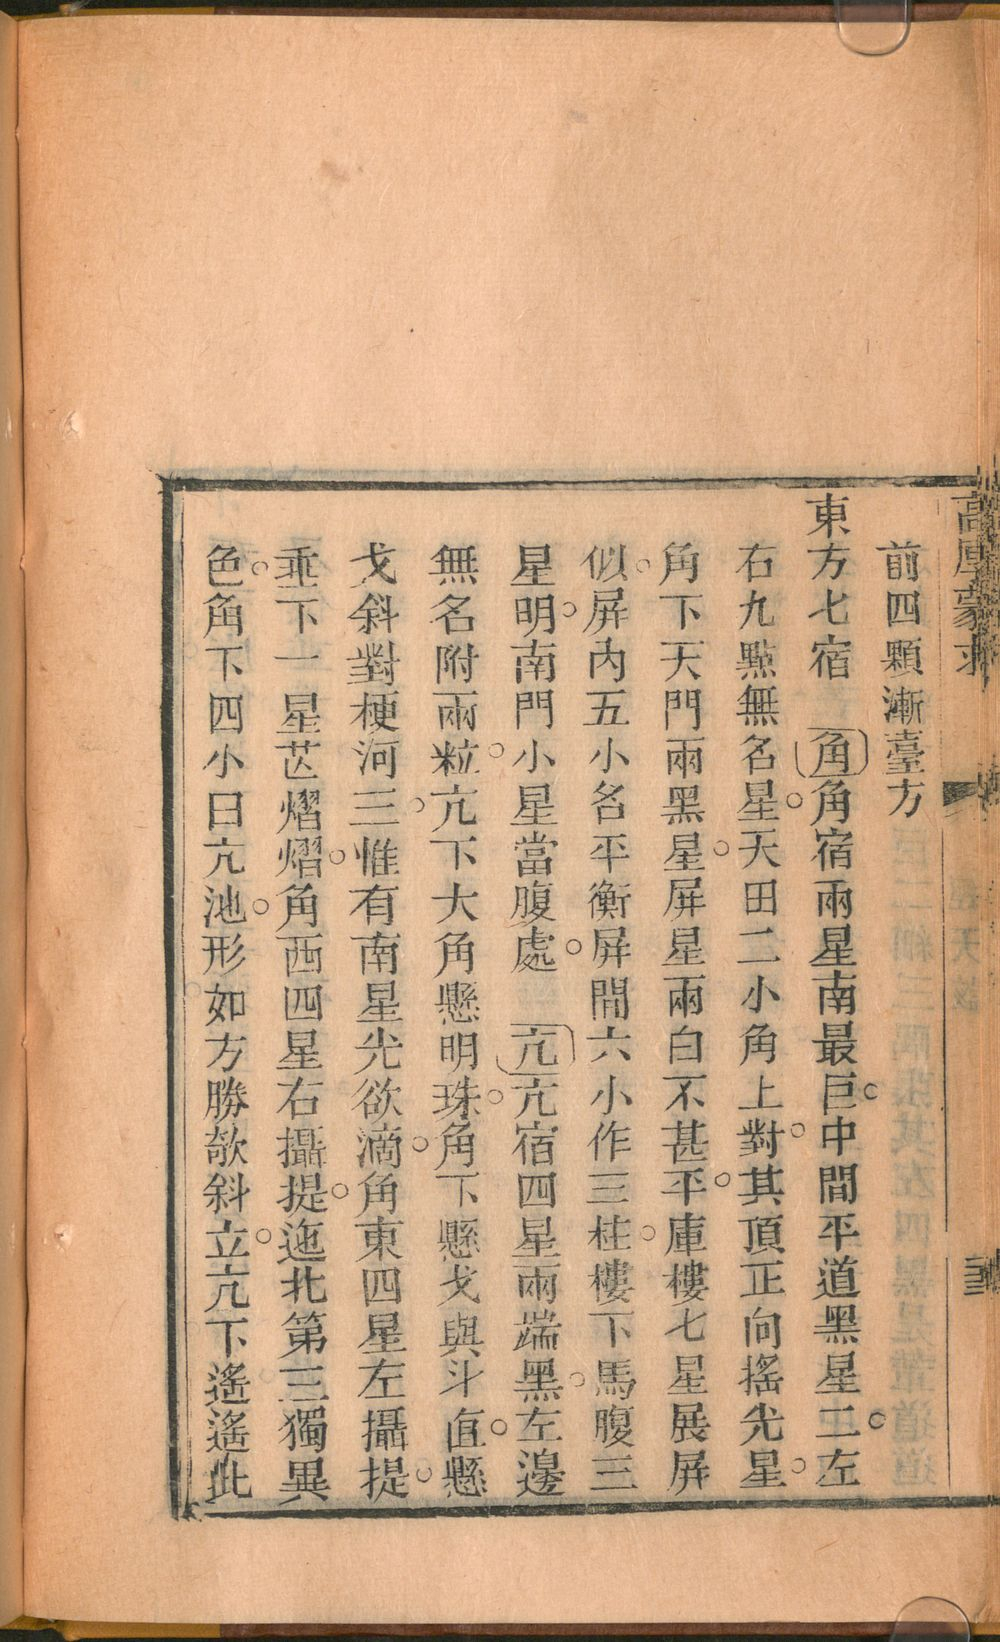 前四顆漸臺方
東方七宿　角角宿兩星南最巨。中間平道黑星二。左
右九點無名星。天田二小角上對。其頂正向搖光星。
角下天門兩黑星。屏星兩白不甚平。庫樓七星展屏
似。屏內五小名平衡屏間六小作三柱。樓下馬腹三
星明。南門小星當腹處。亢亢宿四星兩端黑。左邊
無名附兩粒。亢下大角懸明珠。角下懸戈與斗值。懸
戈斜對梗河三。惟有南星光欲滴。角東四星左攝提。
垂下一星芒熠熠。角西四星右攝提。迤北第三獨異
色。角下四小曰亢池。形如方勝欹斜立。亢下遙遙此